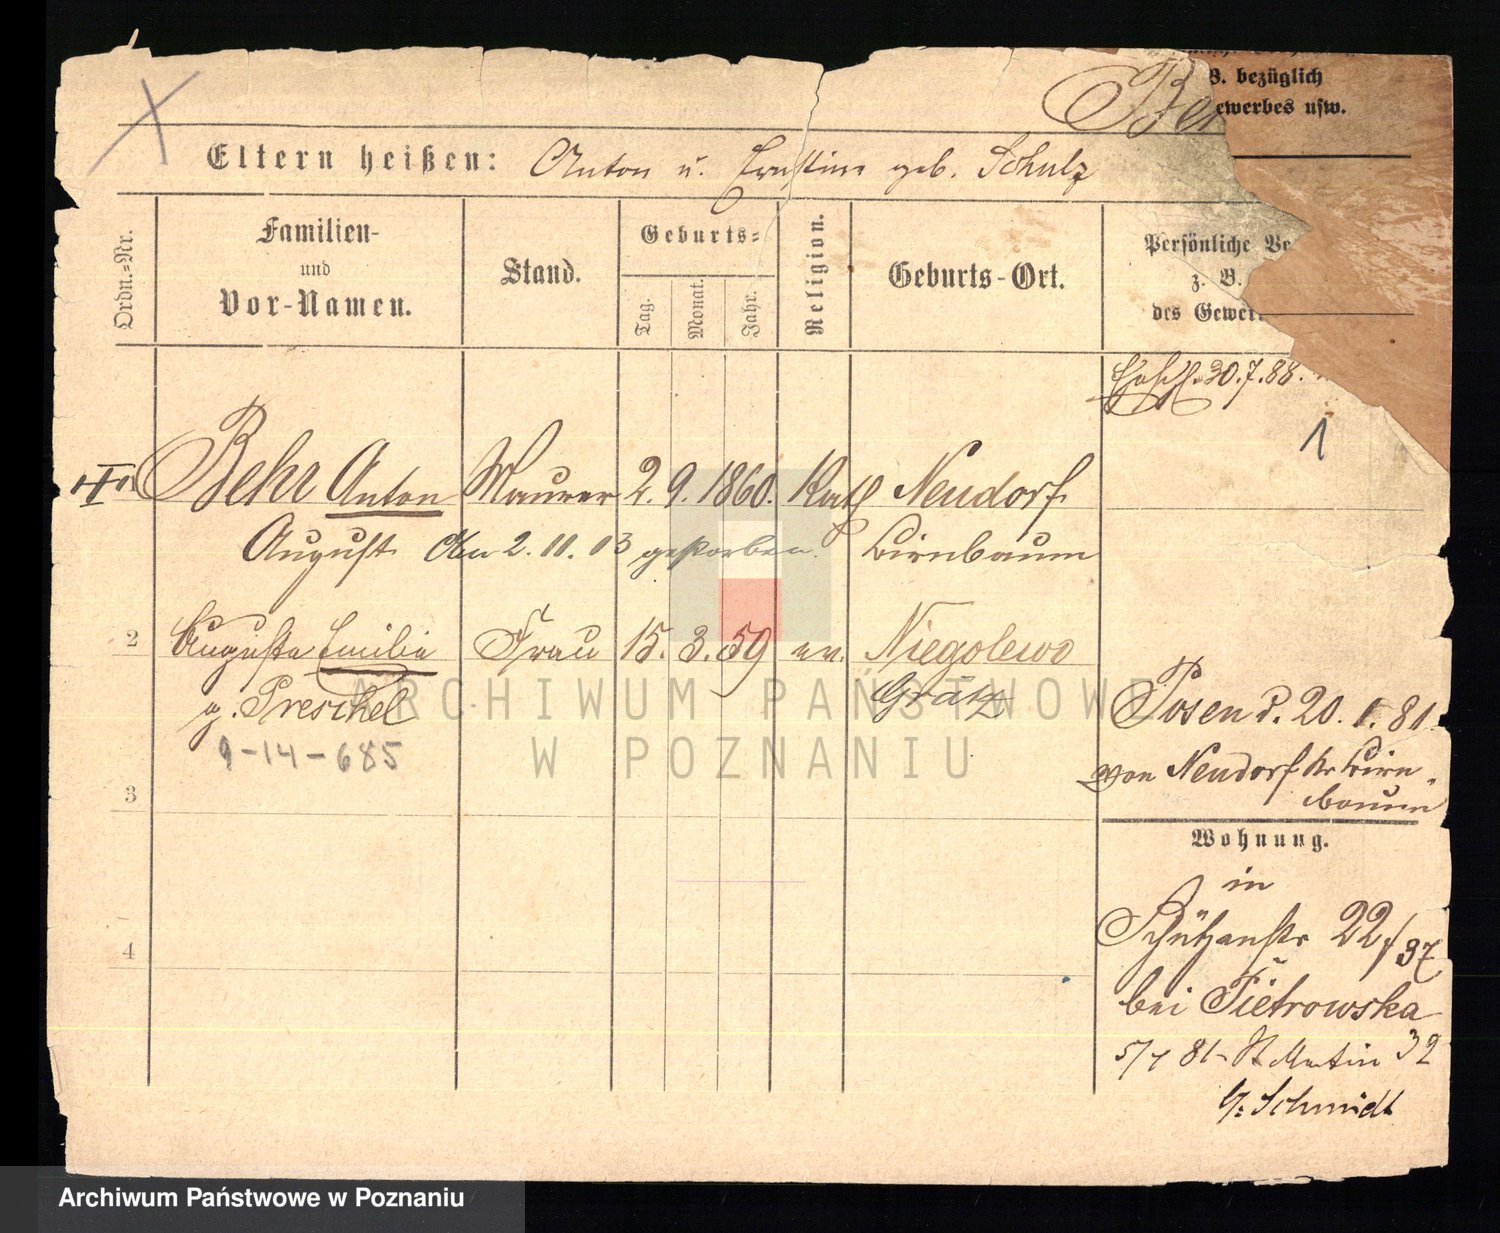 B. bezüglich
ewerbes usw.
Be
Eltern heißen: Anton u. Ernstine geb. Schulz
Ordn.-Nr.
Familien-
und
Vor-Namen.
Stand.
Geburts-
Tag.
Monat.
Jahr.
Religion.
Geburts-Ort.
Persönliche Ve
z. B.
des Gewer
30.7.88.
1
Behr Anton Maurer 2. 9. 1860. Kath Neudorf
August den 2. 11. 03 gestorben. Birnbaum
2 Auguste Emilie Frau 15. 3. 59 ev. Niegolewo
g. Preschel Grätz
9-14-685
Posen d. 20. 1. 81.
von Neudorf Kr Birn
baum
3
Wohnung.
in
Schützenstr 22/37
4
bei Pietrowska
5/7 81 - St Martin 32
b/: Schmidt
ARCHIWUM PAŃSTWOWE
W POZNANIU
Archiwum Państwowe w Poznaniu